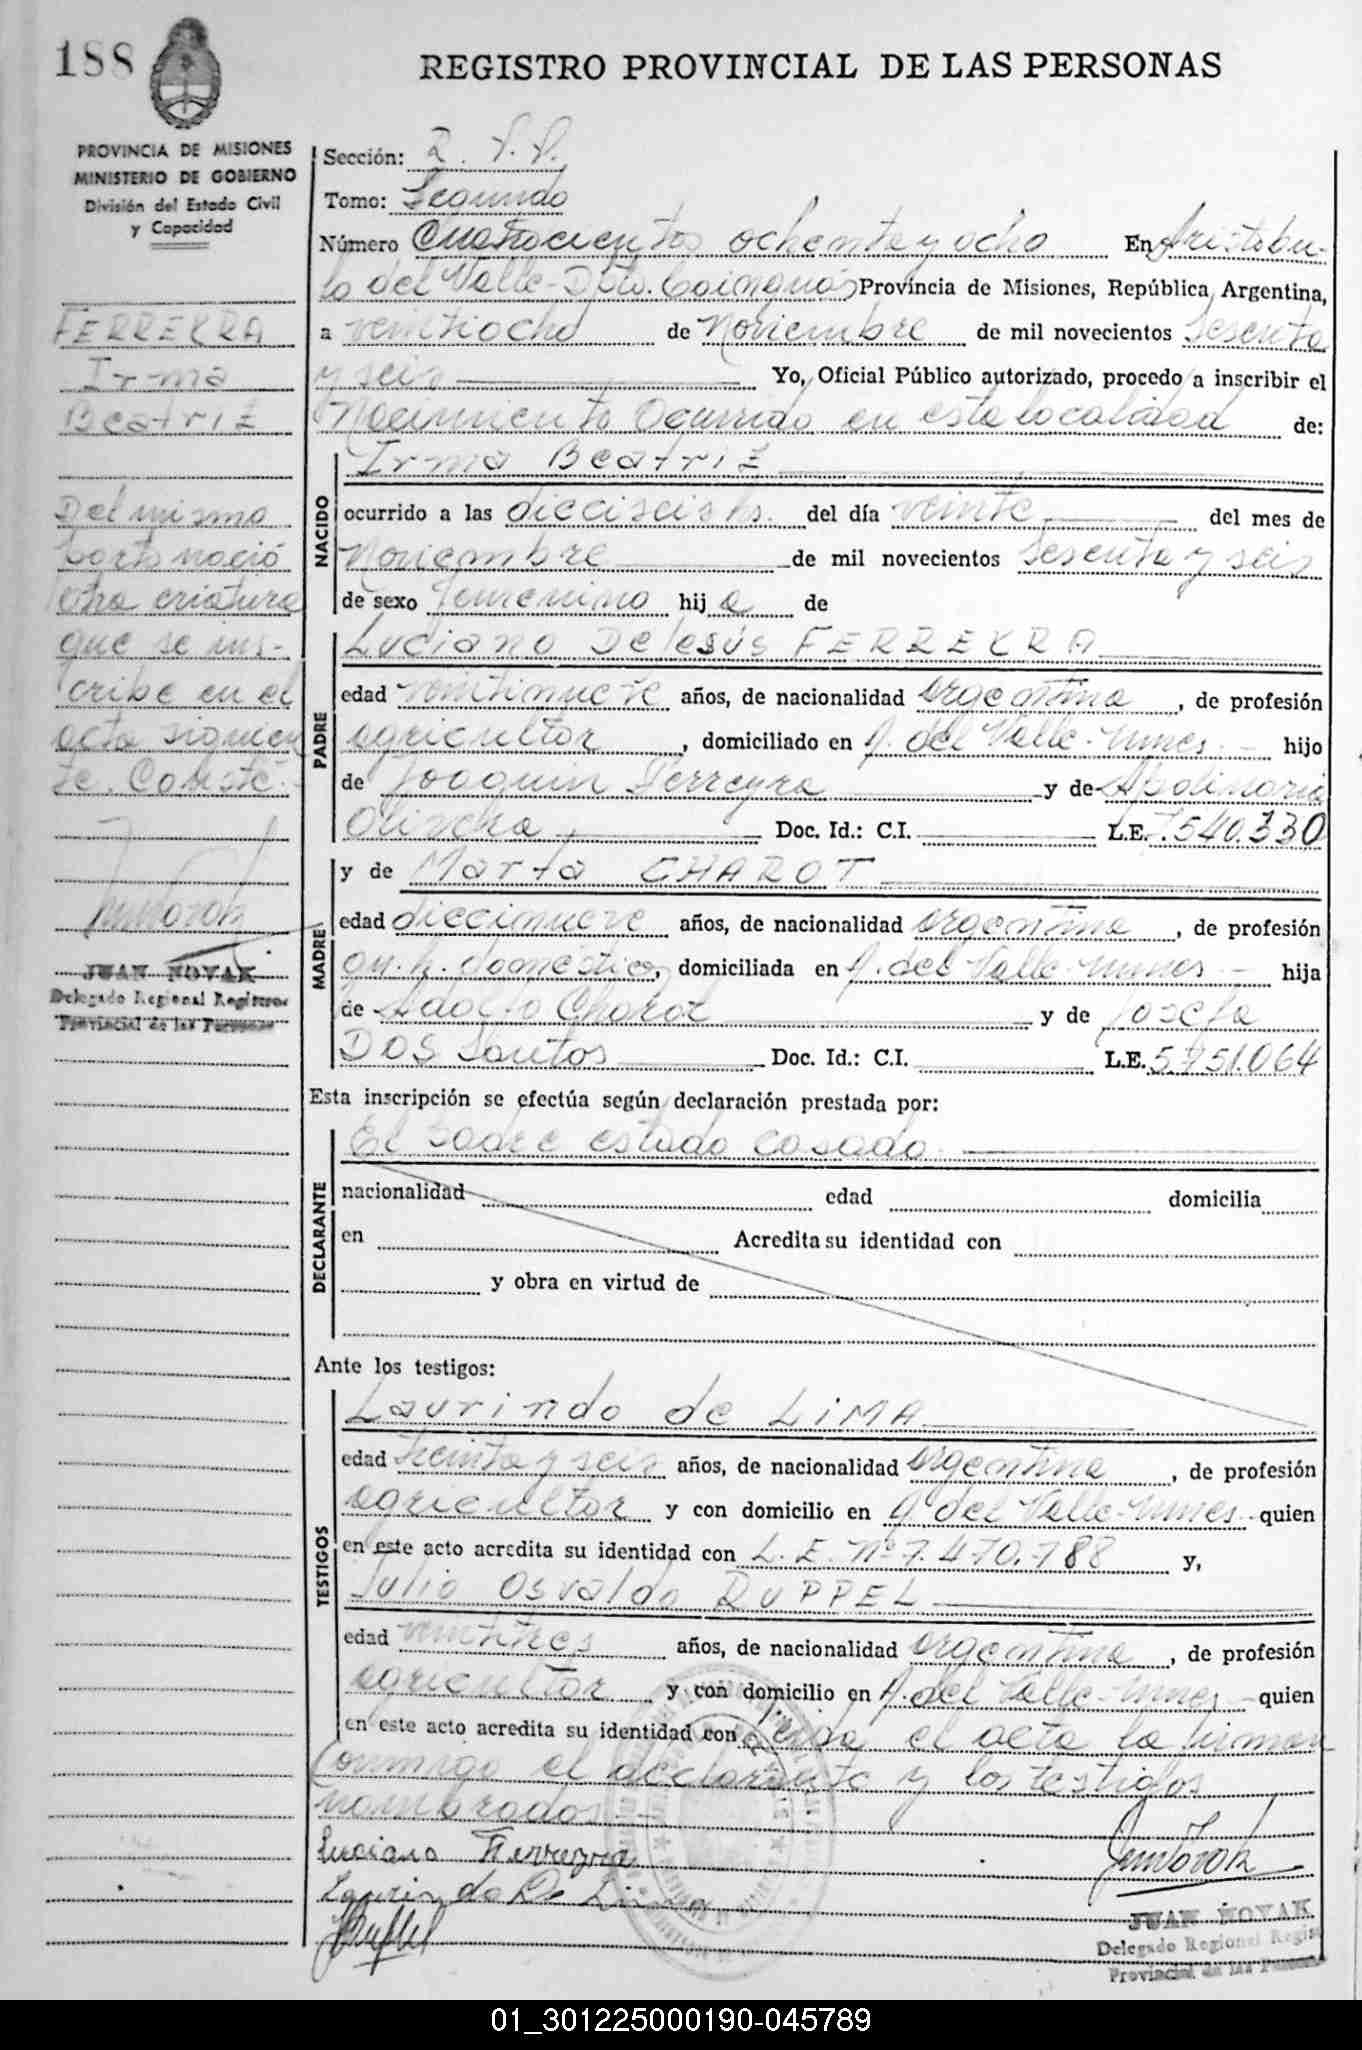 188
REGISTRO PROVINCIAL DE LAS PERSONAS
PROVINCIA DE MISIONES
MINISTERIO DE GOBIERNO
División del Estado Civil
y Capacidad
FERREYRA
Irma
Beatriz
Del mismo
parto nació
otra criatura
que se ins-
cribe en el
acta siguien
te. Conste.-
JUAN NOVAK
Delegado Regional Registro
Provincial de las Personas
Sección: 2
Tomo: Segundo
Número Cuatrocientos ochenta y ocho En Aristobu-
lo del Valle-Dpto. Cainguás Provincia de Misiones, República Argentina,
a veintiocho de Noviembre de mil novecientos sesenta
y seis Yo, Oficial Público autorizado, procedo a inscribir el
Nacimiento Ocurrido en esta localidad de:
NACIDO
Irma Beatriz
ocurrido a las dieciseis hs. del día veinte del mes de
Noviembre de mil novecientos sesenta y seis
de sexo femenino hija de
PADRE
Luciano De Jesús FERREYRA
edad veintinueve años, de nacionalidad argentina, de profesión
agricultor, domiciliado en A. del Valle-Mnes.- hijo
de Joaquin Ferreyra y de Apolinaria
Olincha Doc. Id.: C.I. L.E. 7.540.330
MADRE
y de Marta CHAROT
edad diecinueve años, de nacionalidad argentina, de profesión
qu. h. domestico, domiciliada en A. del Valle-Mnes.- hija
de Adolfo Charot y de Josefa
DOS Santos Doc. Id.: C.I. L.E. 5.751.064
Esta inscripción se efectúa según declaración prestada por:
DECLARANTE
El Padre estado casado
nacionalidad edad domicilia
en Acredita su identidad con
y obra en virtud de
Ante los testigos:
TESTIGOS
Laurindo de LIMA
edad treinta y seis años, de nacionalidad argentina, de profesión
agricultor y con domicilio en A. del Valle-Mnes.- quien
en este acto acredita su identidad con L.E. Nº 7.470.788 y,
Julio Osvaldo RUPPEL
edad veintitres años, de nacionalidad argentina, de profesión
agricultor y con domicilio en A. del Valle-Mnes.- quien
en este acto acredita su identidad con Leida el acta la firman
conmigo el declarante y los testigos
nombrados
Luciano Ferreyra
Laurindo De Lima
JUAN NOVAK
Delegado Regional Regist
Provincial de las Persona
01_301225000190-045789